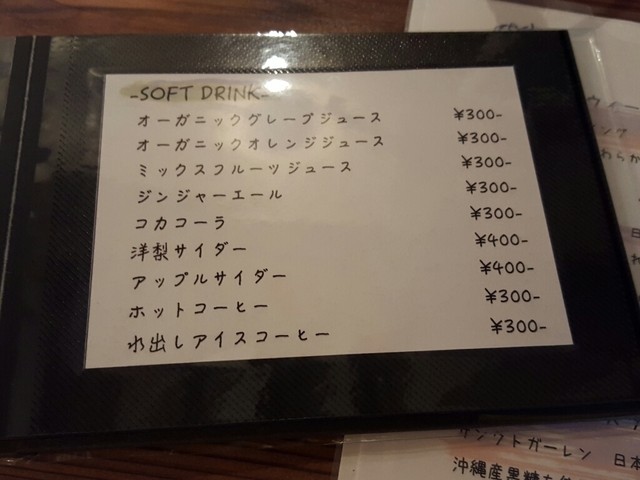 -SOFT DRINK-
オーガニックグレープジュース ¥300-
オーガニックオレンジジュース ¥300-
ミックスフルーツジュース ¥300-
ジンジャーエール ¥300-
コカコーラ ¥300-
洋梨サイダー ¥400-
アップルサイダー ¥400-
ホットコーヒー ¥300-
水出しアイスコーヒー ¥300-
サンクトガーレン 日本
沖縄産黒糖を